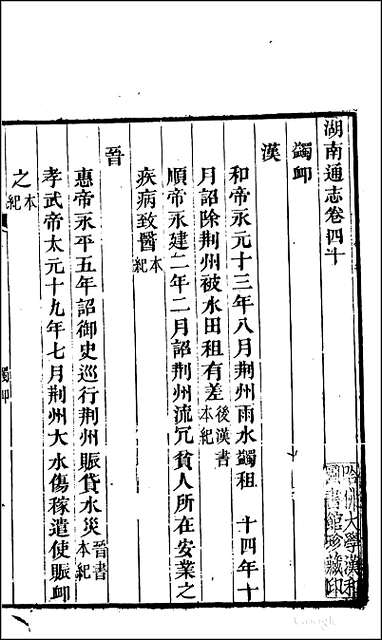 湖南通志卷四十
蠲卹
漢
和帝永元十三年八月荆州雨水蠲租　十四年十
月詔除荆州被水田租有差後漢書本紀
順帝永建二年二月詔荆州流宂貧人所在安業之
疾病致醫本紀
晉
惠帝永平五年詔御史巡行荆州賑貸水災晉書本紀
孝武帝太元十九年七月荆州大水傷稼遣使賑卹
之本紀
蠲卹
哈佛大學漢和
圖書館珍藏印
Google